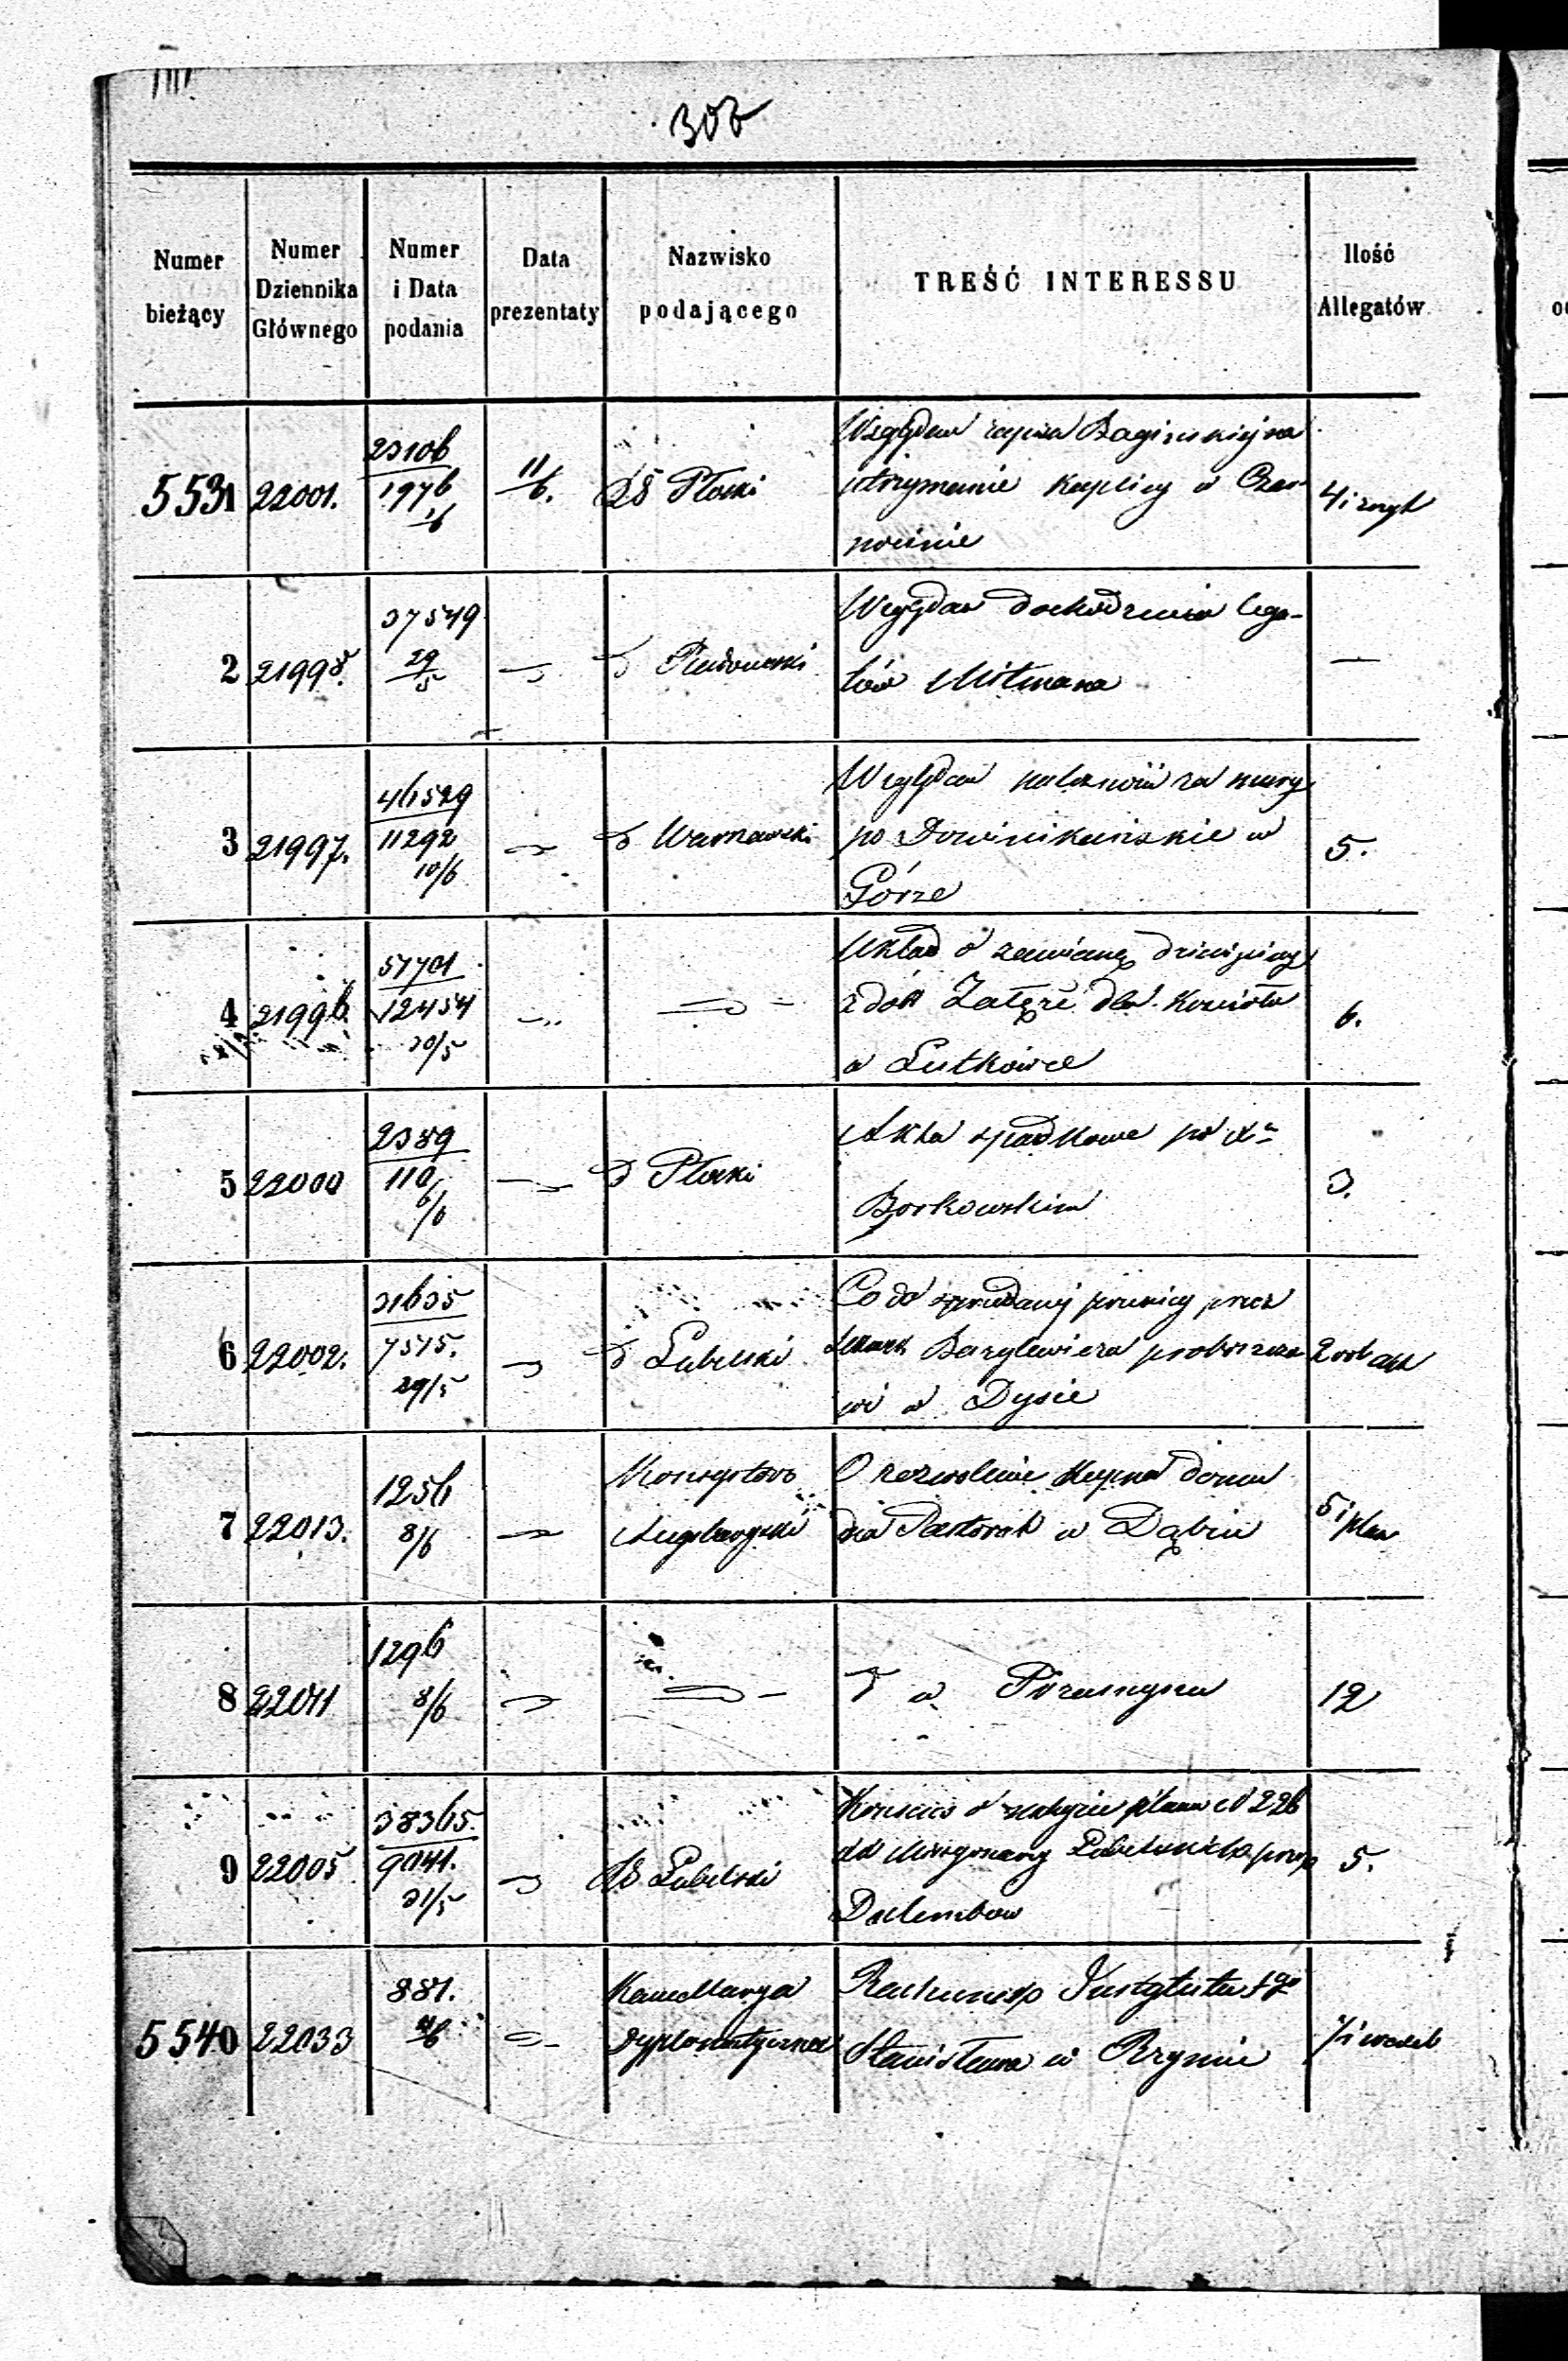 306
Numer bieżący
Numer Dziennika Głównego
Numer i Data podania
Data prezentaty
Nazwisko podającego
TREŚĆ INTERESSU
Ilość Allegatów
5531 22001. 23106 1976 11/6. Płocki
Względem zapisu Bagińskiej na
utrzymanie Kaplicy w Czar-
nocinie
4 i
2 21998. 37549 29/5 Radomski —
Względem dochodzenia lega-
tów Mitmana
3 21997. 46529 11292 10/6 Warszawski 5.
Względem za mury
po Dominikańskie w
Górze
4 21996 57701 12454 30/5 6.
Układ o zamianę dziesięciny
z dóbr Załęże dla Kościoła
w Lutkówce
5 22000 2389 110 6/6 Płocki 3.
Akta spadkowe po X
Borkowskim
6 22002. 31635 7575. 29/5 Lubelski 2
Co do sprzedanej przez
Bazylewicza proboszczo-
wi w Dysie
7 22013. 1256 8/6 5 i plan
Konsystorz
Augsburgski
O zezwolenie kupna domu
dla Pastorah w Dąbiu
8 22011 1296 8/6 12
w Przasnyszu
9 22005 38365. 9041. 31/5 Lubelski 5.
Konsens o nabycie placu N 226
Dalembow
5540 22033 881.
Kancellarya
Dyplomatyczna
Rachunek Instytutu Sgo
Stanisława w Rzymie
7 i